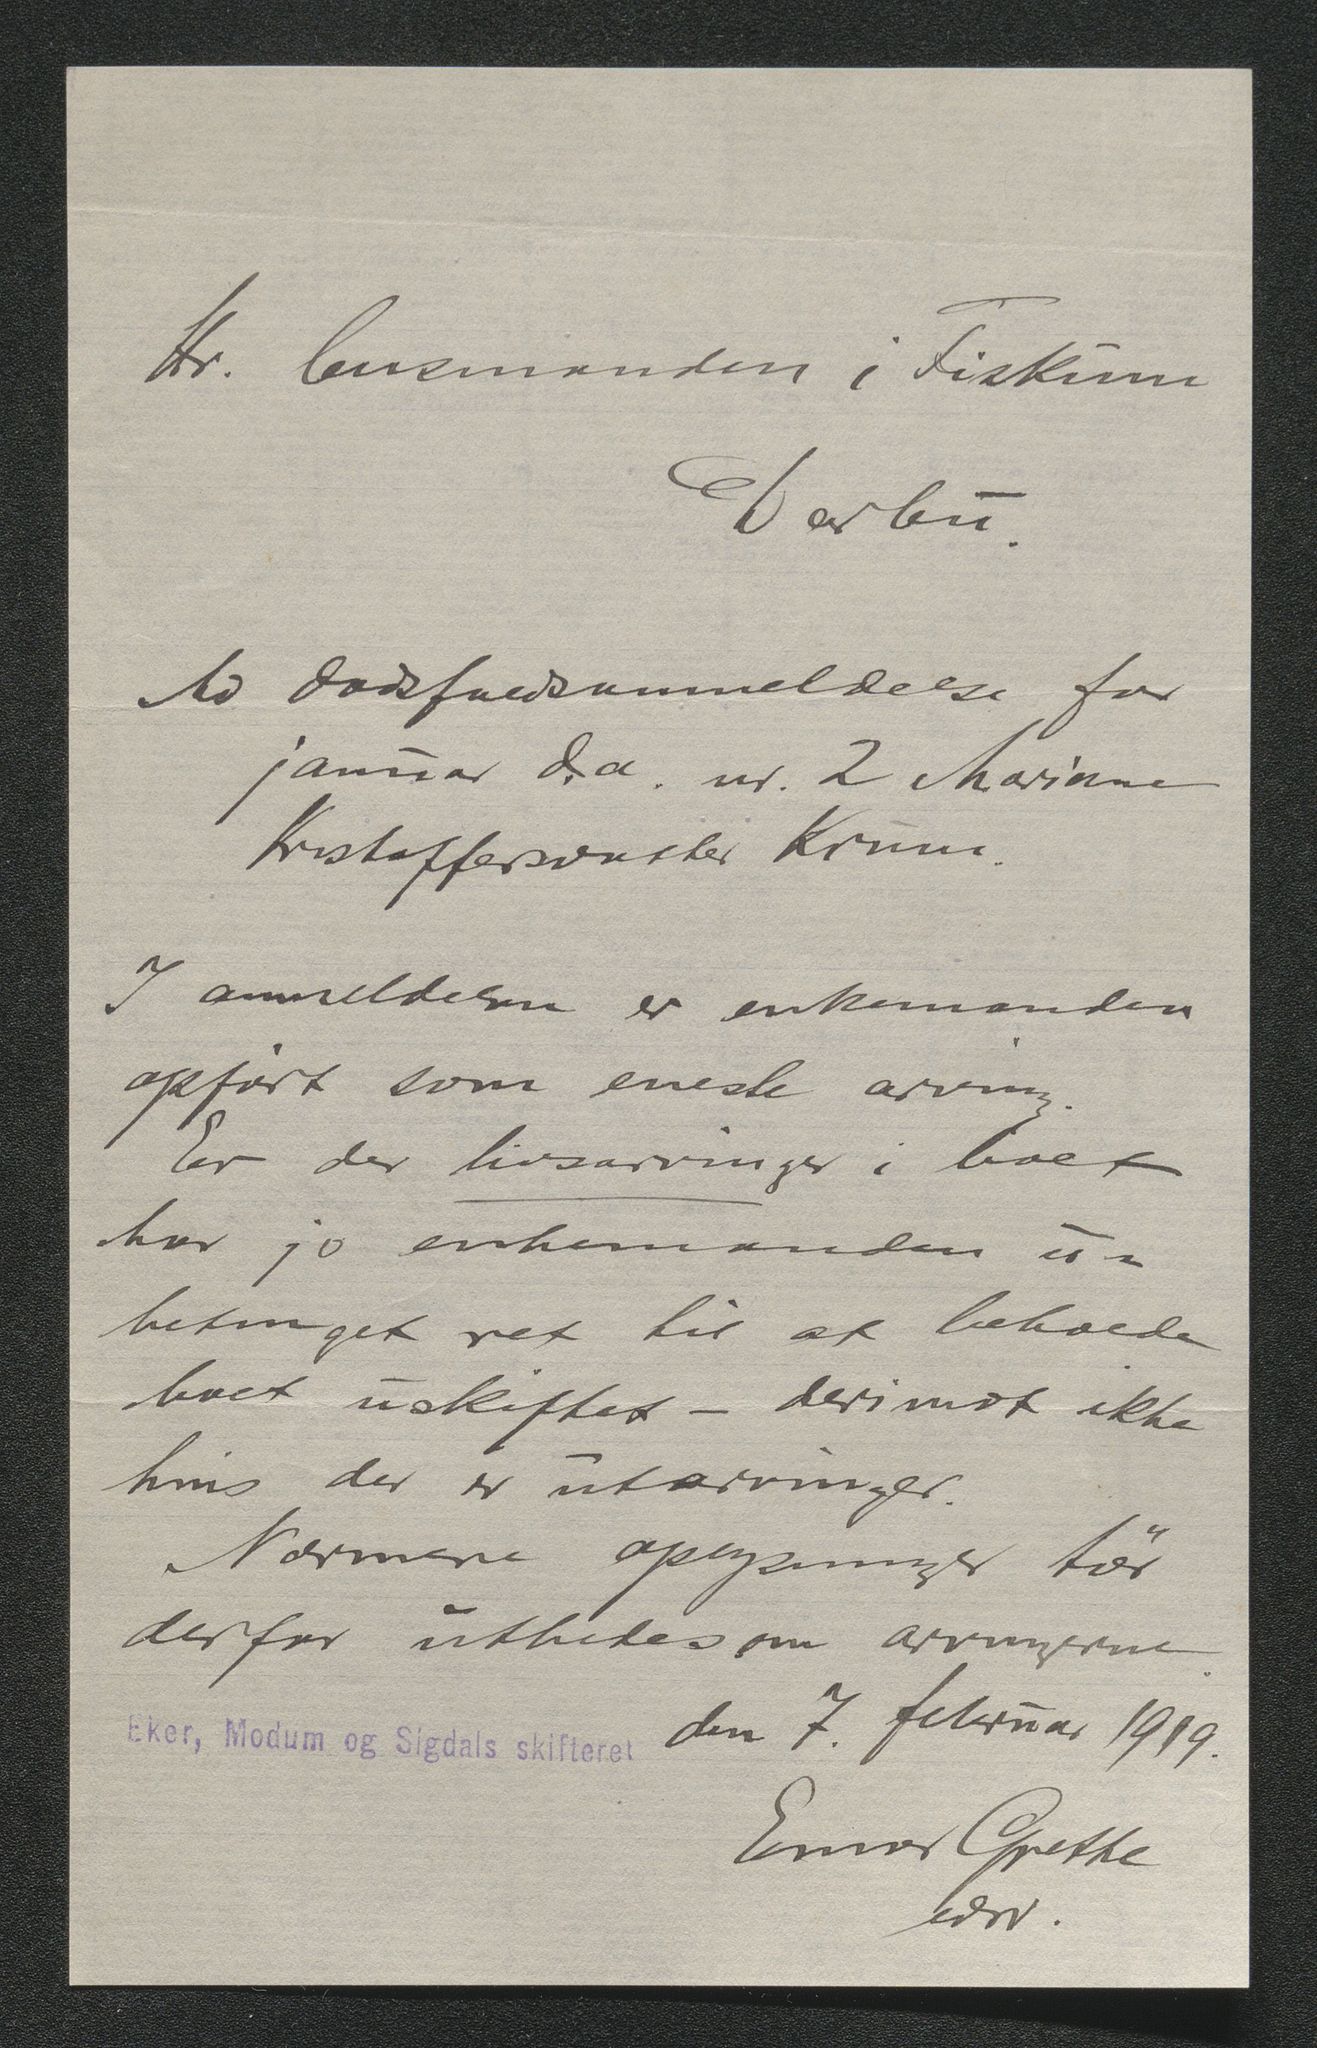 Hr. lensmanden i Fiskum
Darbu.
Ad dødsfaldsanmeldelse for
januar d.a. nr. 2 Mariane
Kristoffersdatter Krum.
I anmeldelsen er enkemanden
opført som eneste arving.
Er der livsarvinger i boet
har jo enkemanden u-
betinget ret til at beholde
boet uskiftet – derimot ikke
hvis der er utarvinger.
Nærmere oplysninger bør
derfor utbedes om arvingerne.
Eker, Modum og Sigdals skifteret den 7. februar 1919.
Einar Grethe